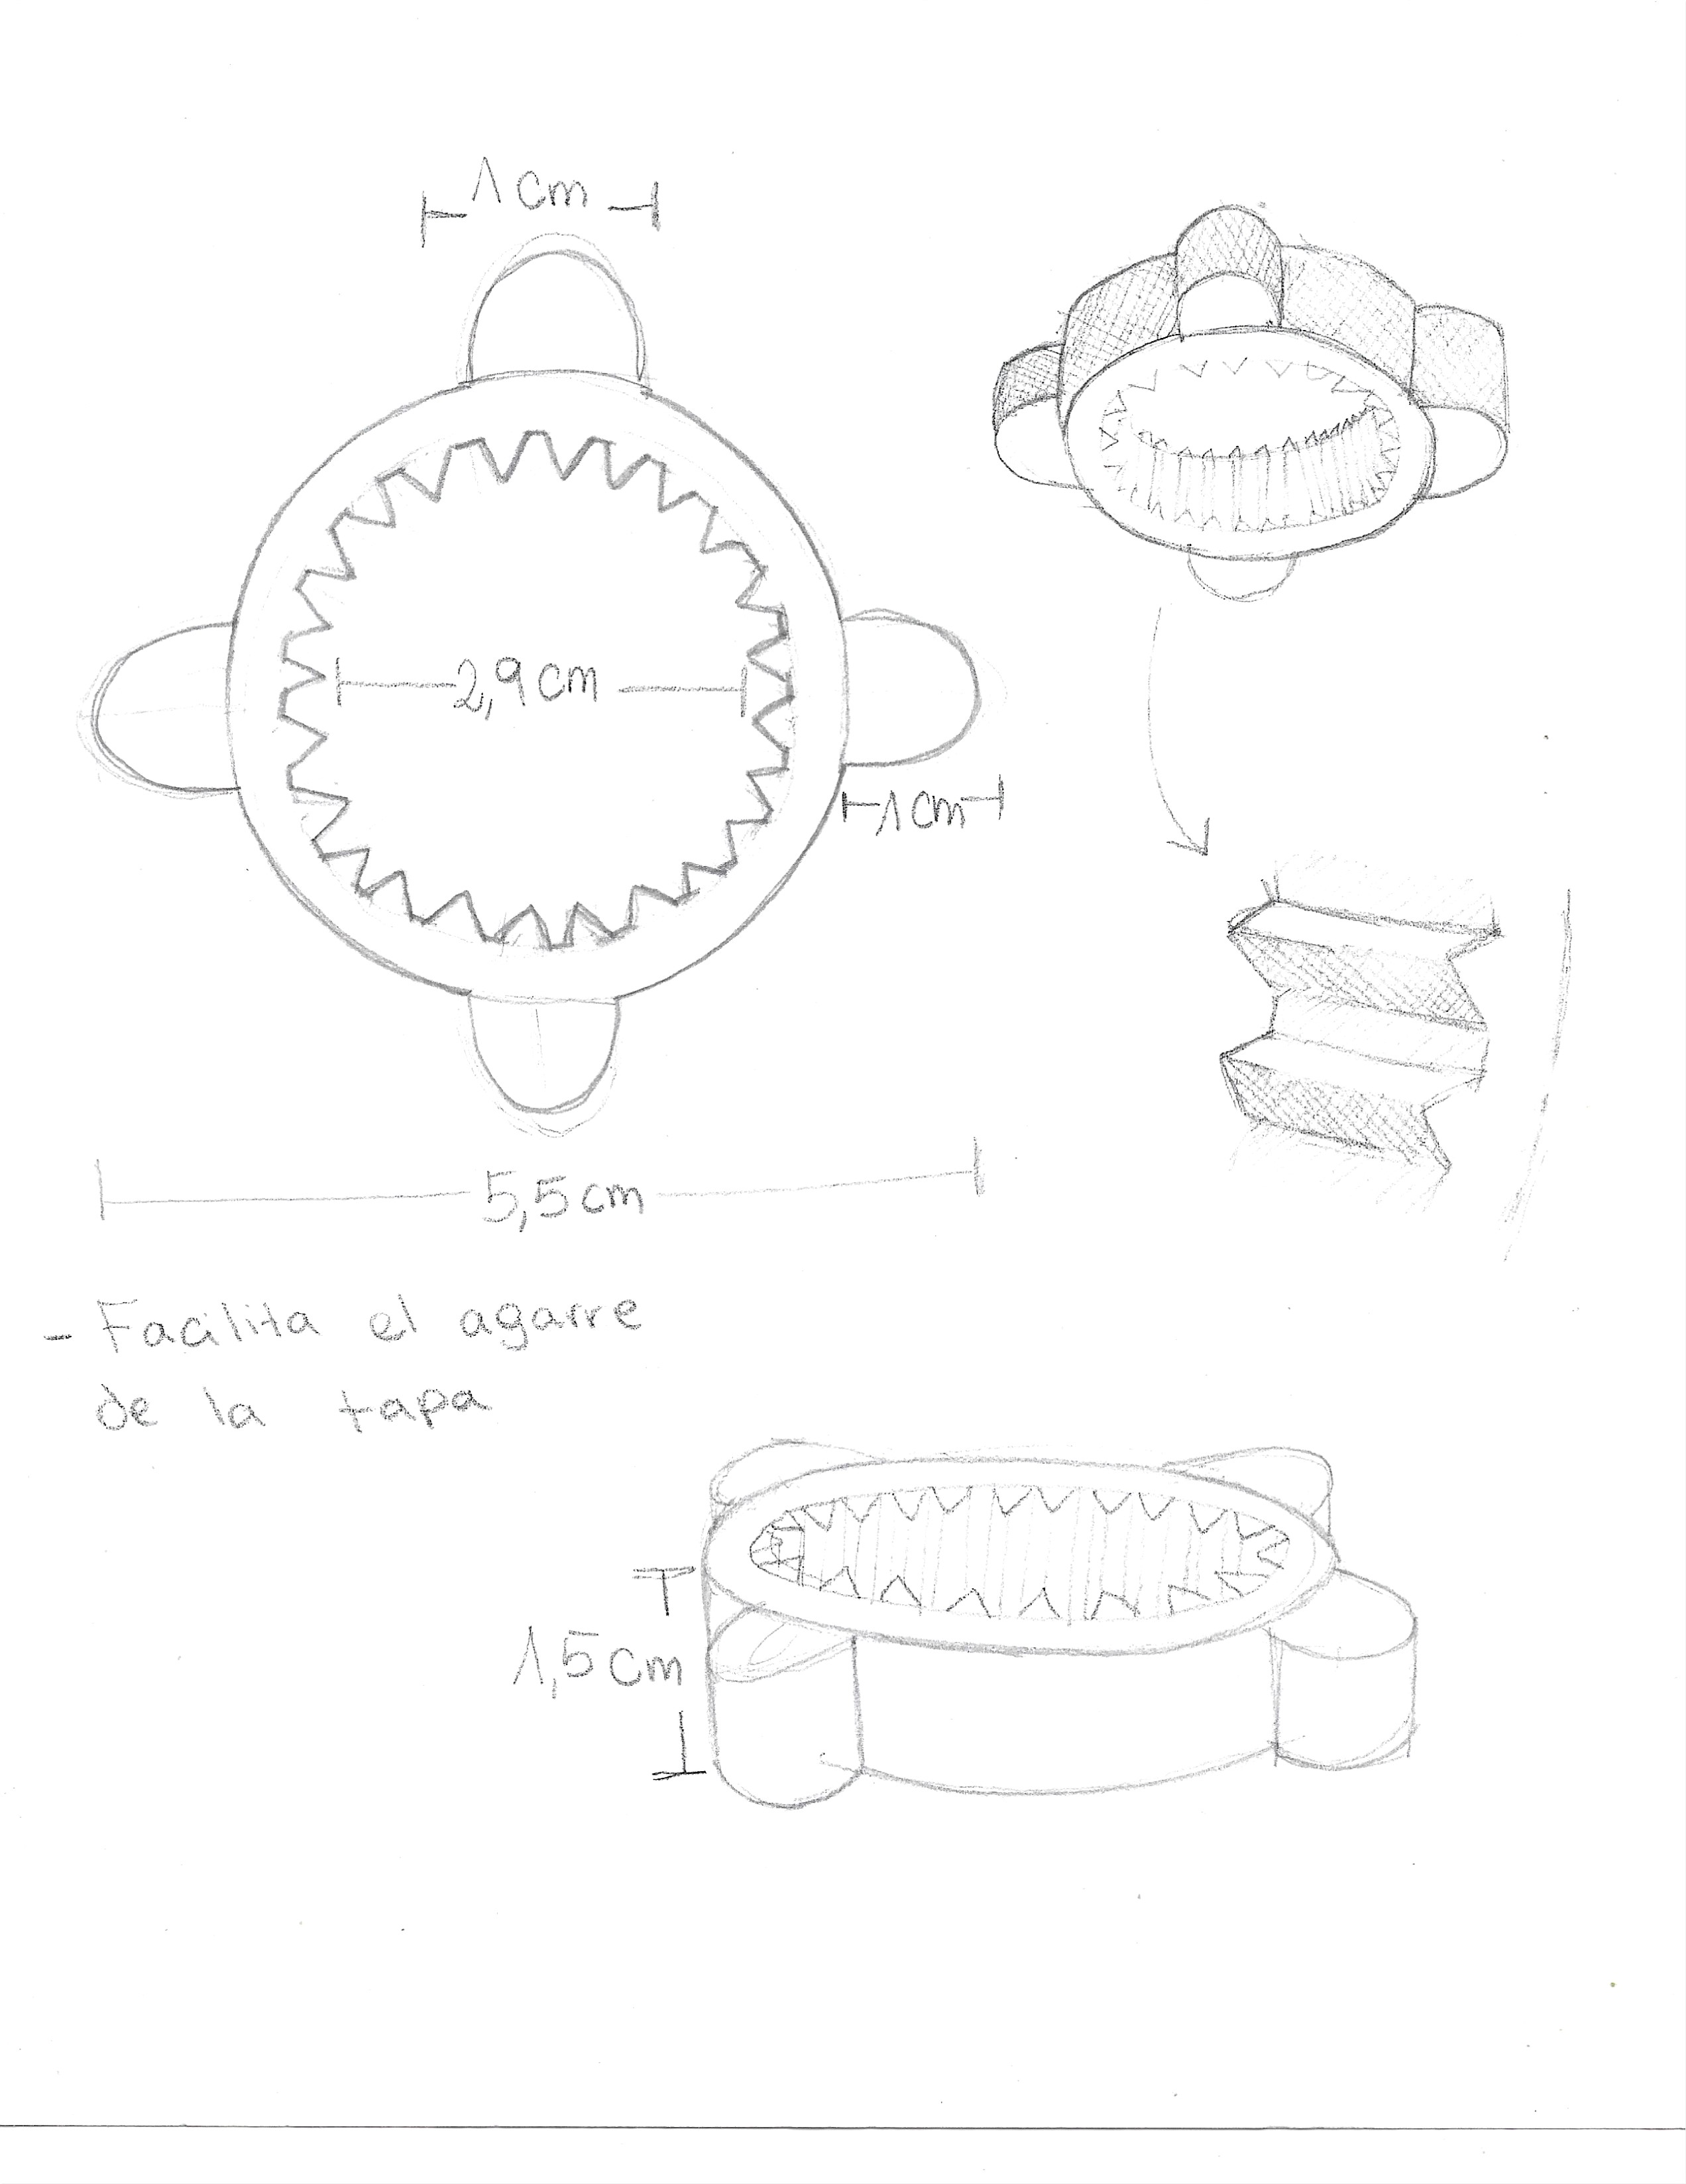 1 cm
2,9 cm
1 cm
5,5 cm
- Facilita el agarre
de la tapa
1,5 cm